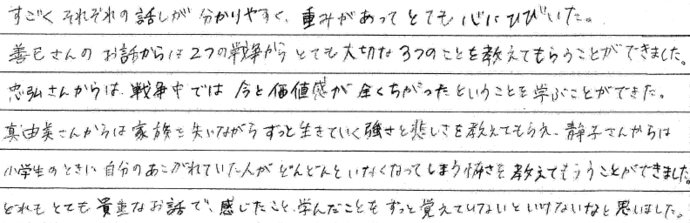 すごくそれぞれの話しが分かりやすく、重みがあってとても心にひびいた。
善已さんのお話からは2つの戦争からとても大切な3つのことを教えてもらうことができました。
忠弘さんからは、戦争中では今と価値感が全くちがったということを学ぶことができた。
真由美さんからは家族を失いながらずっと生きていく強さと悲しさを教えてもらえ、静子さんからは
小学生のときに自分のあこがれていた人がどんどんといなくなってしまう怖さを教えてもらうことができました。
どれもとても貴重なお話で、感じたこと、学んだことをずっと覚えていけないといけないなと思いました。